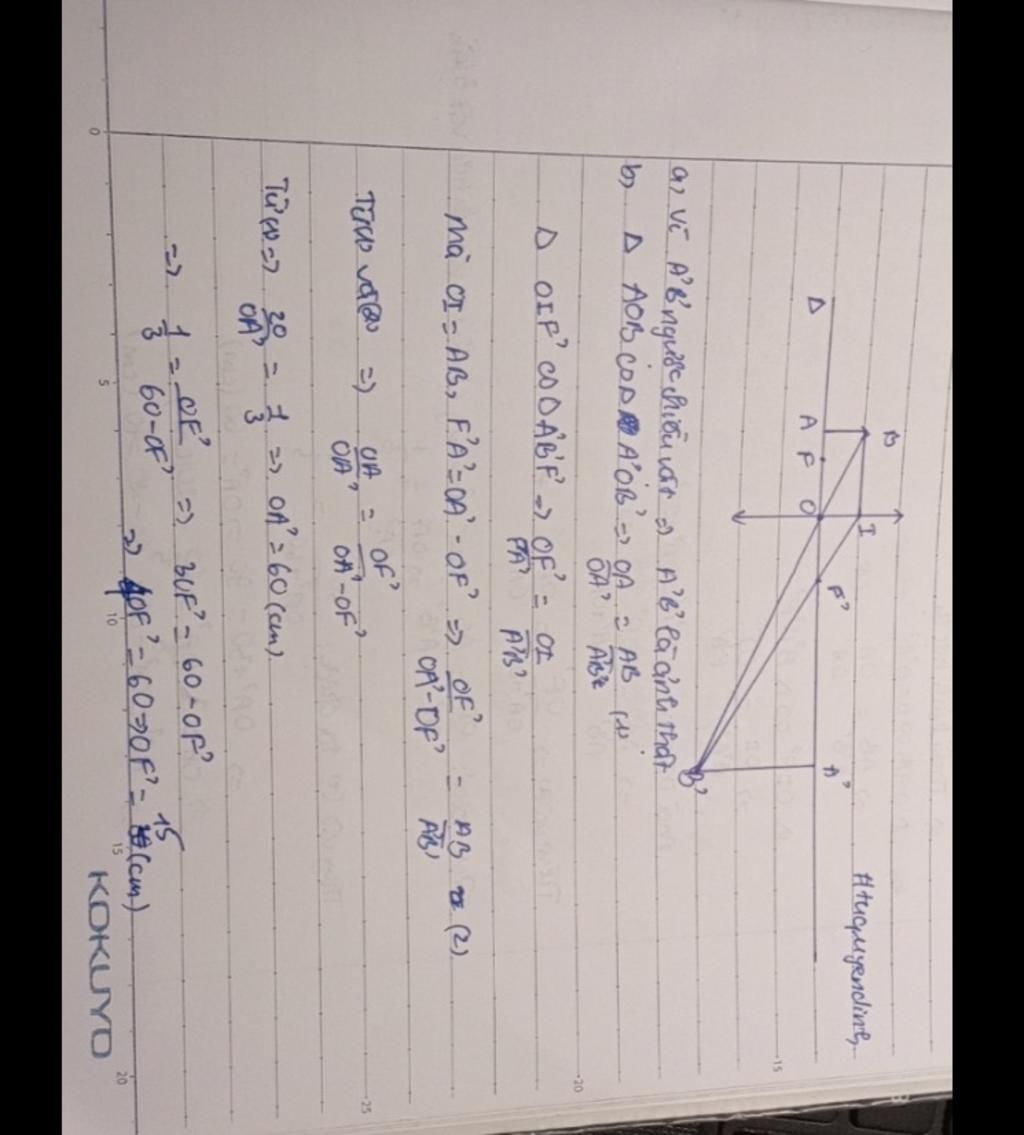 Htuquyendinh
B I
Δ A F O F' A'
B'
a, vì A'B' ngược chiều vật => A'B' là ảnh thật
b, Δ AOB ∽ Δ A'OB' => OA/OA' = AB/A'B' (1)
Δ OIF' ∽ Δ A'B'F' => OF'/F'A' = OI/A'B'
mà OI = AB, F'A' = OA' - OF' => OF'/OA'-OF' = AB/A'B' (2)
Từ (1) và (2) => OA/OA' = OF'/OA'-OF'
Từ (1) => 20/OA' = 1/3 => OA' = 60 (cm)
=> 1/3 = OF'/60-OF' => 3OF' = 60 - OF'
=> 4OF' = 60 => OF' = 15 (cm)
0 5 10 15 20
15 20 25
KOKUYO